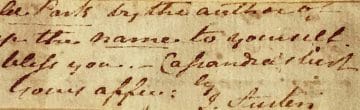 Park by the author of
the name to yourself.
bless you. — Cassandra's best
Yours affec: ly
J. Austen